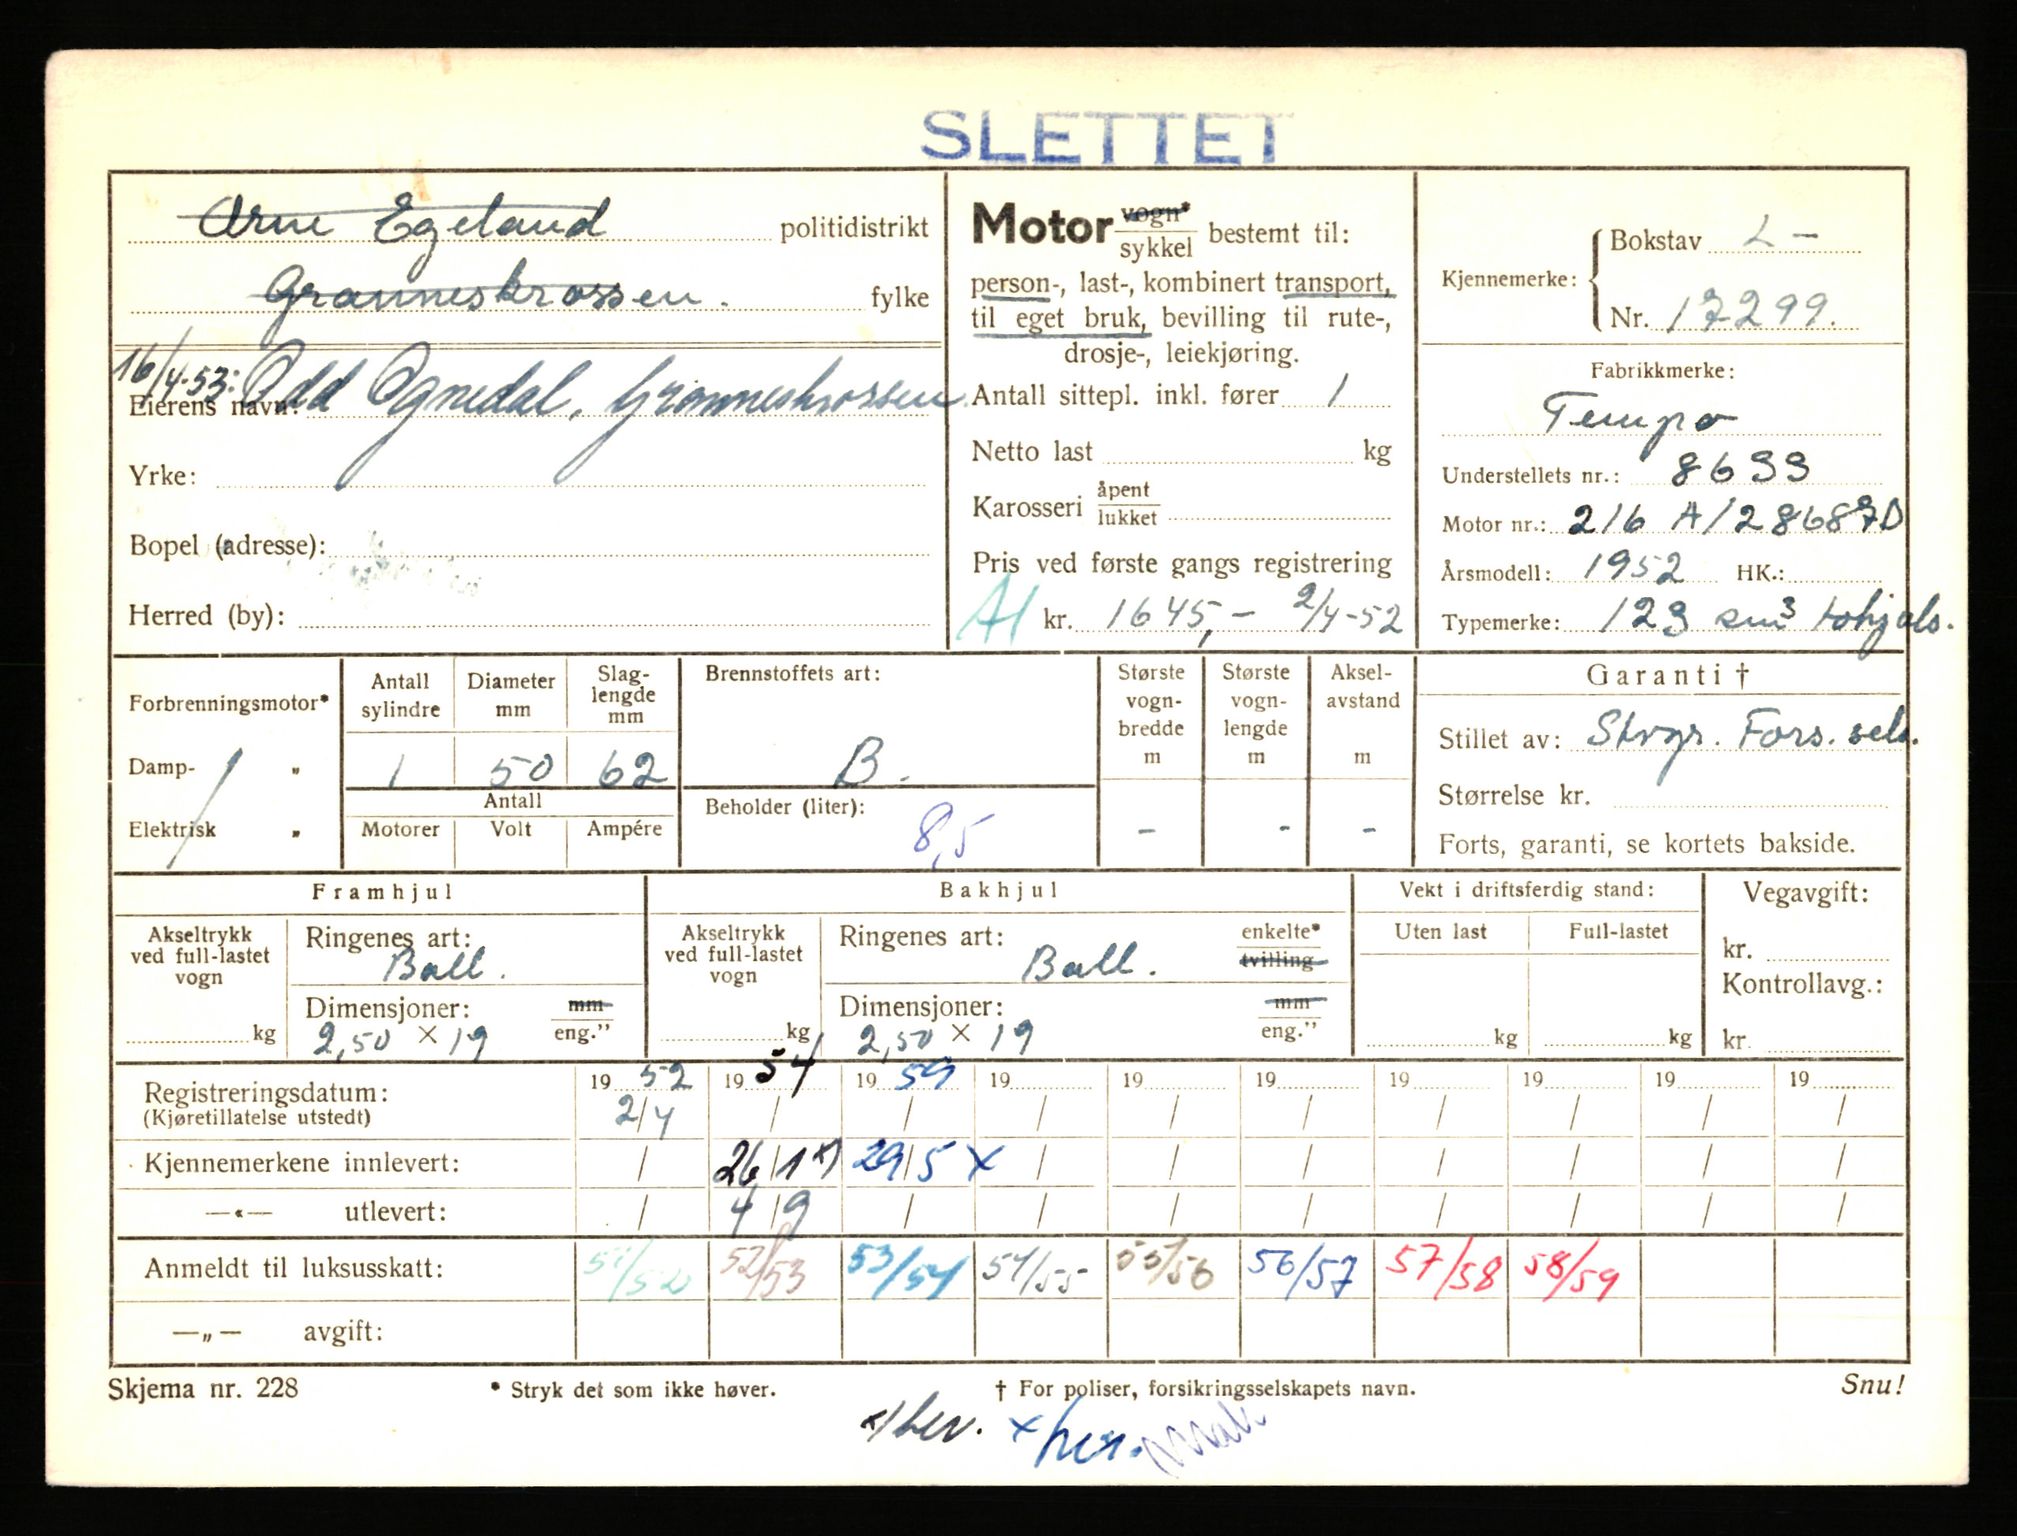 SLETTET
Arne Egeland politidistrikt
Granneskrossen. fylke
16/4-53: Odd Ognedal, Granneskrossen
Eierens navn:
Yrke:
Bopel (adresse):
Herred (by):
Motor vogn* sykkel bestemt til:
person-, last-, kombinert transport,
til eget bruk, bevilling til rute-,
drosje-, leiekjøring.
Antall sittepl. inkl. fører 1
Netto last kg
Karosseri åpent lukket
Pris ved første gangs registrering
A1 kr. 1645,- 2/4-52
Kjennemerke:
Bokstav L-
Nr. 17299.
Fabrikkmerke:
Tempo
Understellets nr.: 8633
Motor nr.: 216 A/286873D
Årsmodell: 1952 HK.:
Typemerke: 123 cm3 tohjuls.
Forbrenningsmotor*
Damp- „
Elektrisk „
Antall sylindre
Diameter mm
Slag-lengde mm
1 50 62
Antall
Motorer Volt Ampére
Brennstoffets art:
B.
Beholder (liter):
8,5
Største vogn-bredde m
Største vogn-lengde m
Aksel-avstand m
- - -
Garanti †
Stillet av: Stvgr. Fors. sels.
Størrelse kr.
Forts, garanti, se kortets bakside.
Framhjul
Akseltrykk ved full-lastet vogn
kg
Ringenes art:
Ball.
Dimensjoner: mm
2,50 × 19 eng.”
Bakhjul
Akseltrykk ved full-lastet vogn
kg
Ringenes art: enkelte*
Ball. tvilling
Dimensjoner: mm
2,50 × 19 eng.”
Vekt i driftsferdig stand:
Uten last Full-lastet
kg kg
Vegavgift:
kr.
Kontrollavg.:
kr.
Registreringsdatum: 19 52 19 54 19 59 19 19 19 19 19 19 19
(Kjøretillatelse utstedt) 2/4 / / / / / / / / /
Kjennemerkene innlevert: / 26/1 x) 29/5 x / / / / / / /
—«— utlevert: / 4/9 / / / / / / / /
Anmeldt til luksusskatt: 51/52 52/53 53/54 54/55 55/56 56/57 57/58 58/59
—„— avgift:
Skjema nr. 228 * Stryk det som ikke høver. † For poliser, forsikringsselskapets navn. Snu!
x) ber. x ber.